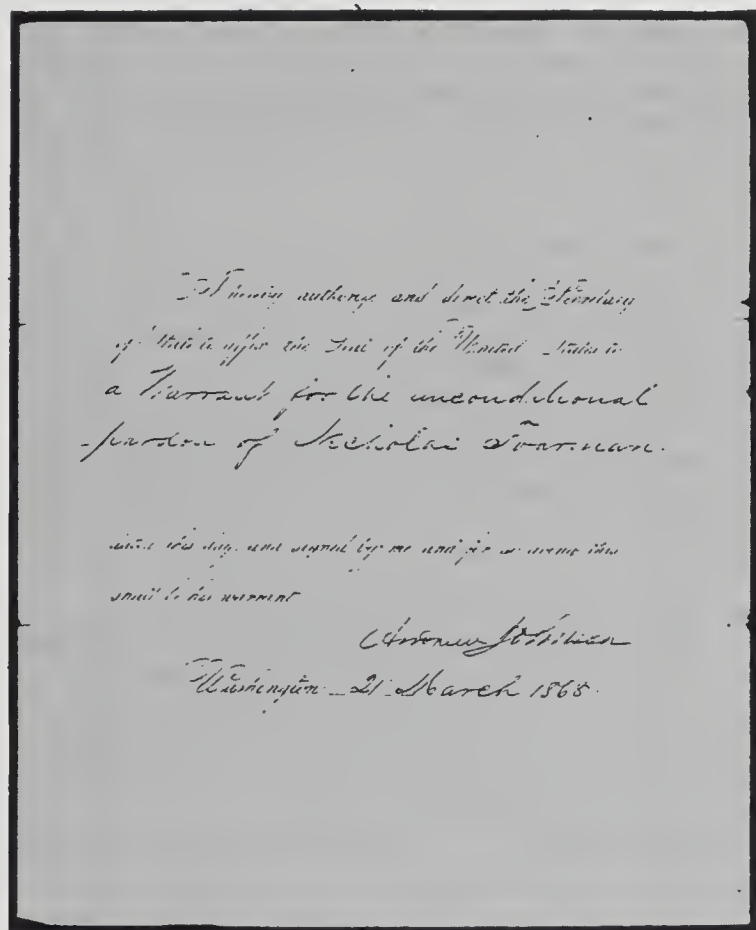 I hereby authorize and direct the Secretary
of State to affix the Seal of the United States to
a Warrant for the unconditional
pardon of Nicholai
dated this day, and signed by me and for so doing this
shall be his warrant
Andrew Johnson
Washington 21 March 1868.